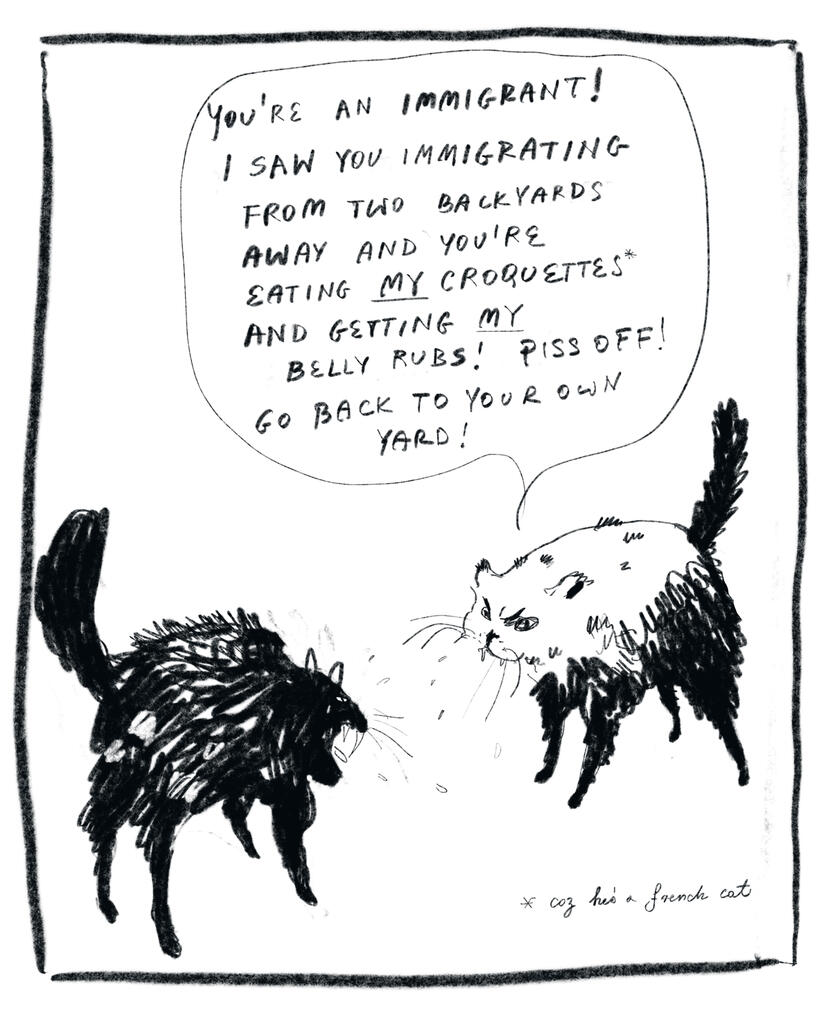 YOU'RE AN IMMIGRANT!
I SAW YOU IMMIGRATING
FROM TWO BACKYARDS
AWAY AND YOU'RE
EATING MY CROQUETTES*
AND GETTING MY
BELLY RUBS! PISS OFF!
GO BACK TO YOUR OWN
YARD!
* coz he's a french cat